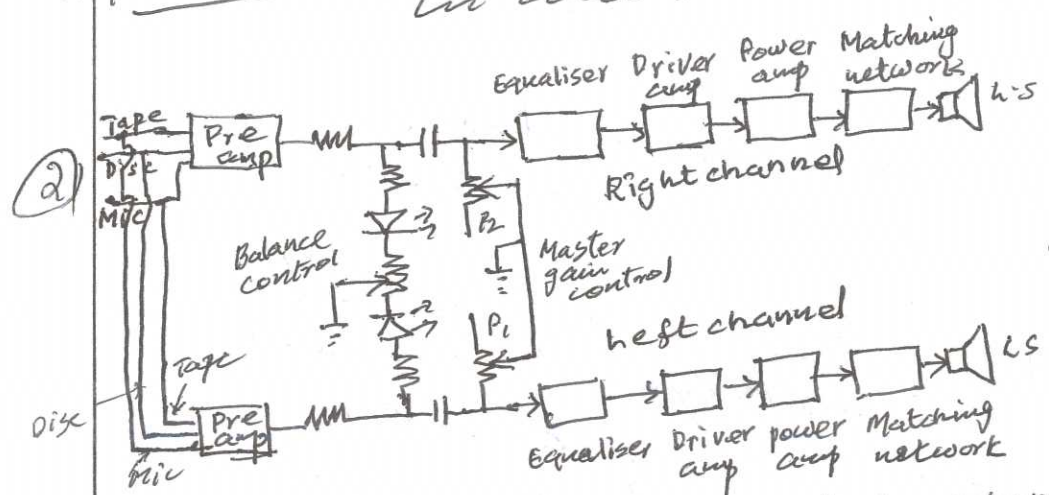 Equaliser
Driver
amp
Power
amp
Matching
network
L-S
Tape
Disc
Mic
Pre
amp
2
Right channel
P2
Balance
control
Master
gain
control
P1
Left channel
LS
Tape
Disc
Pre
amp
Mic
Equaliser
Driver
amp
power
amp
Matching
network